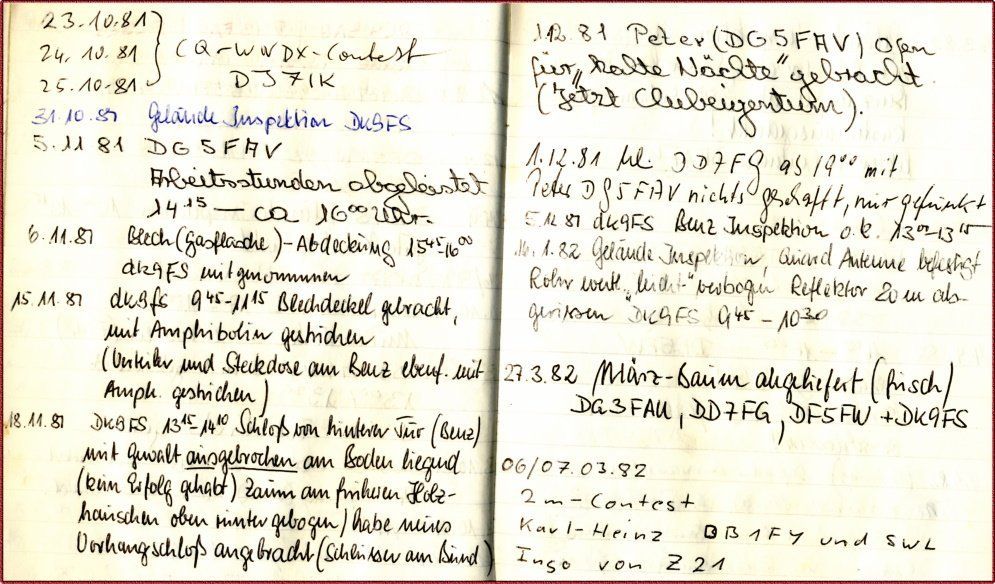 23.10.81
24.10.81 CQ-WWDX-Contest
25.10.81 DJ7IK
31.10.81 Gelände Inspektion DK9FS
5.11 81 DG5FAV
Arbeitsstunden abgeleistet
14 15 — ca 16 00 Uhr.
6.11.81 Blech (Gasflasche)-Abdeckung 15 45-16 00
dk9FS mitgenommen
15.11.81 dk9fs 9 45-11 15 Blechdeckel gebracht,
mit Amphibolin gestrichen
(Verteiler und Steckdose am Benz ebenf. mit
Amph. gestrichen)
18.11.81 DK9FS, 13 15-14 10 Schloß von hinterer Tür (Benz)
mit Gewalt ausgebrochen am Boden liegend
(kein Erfolg gehabt) Zaun am früheren Holz-
häuschen oben runter gebogen) habe neues
Vorhangschloß angebracht (Schlüssel am Bund)
1.12.81 Peter (DG5FAV) Ofen
für "kalte Nächte" gebracht.
(Jetzt Clubeigentum).
1.12.81 DD7FG ab 19 00 mit
Peter DG5FAV nichts geschafft, nur gefunkt
5.12.81 dk9FS Benz Inspektion o.k. 13 00-13 15
1.82 Gelände Inspektion, Antenne befestigt
Rohr "leicht" verbogen Reflektor 20 m ab-
gerissen DK9FS 9 45 - 10 30
27.3.82 März-Baum abgeliefert (frisch)
DG3FAU, DD7FG, DF5FW + DK9FS
06/07.03.82
2m-Contest
Karl-Heinz DB1FY und SWL
Ingo von Z21